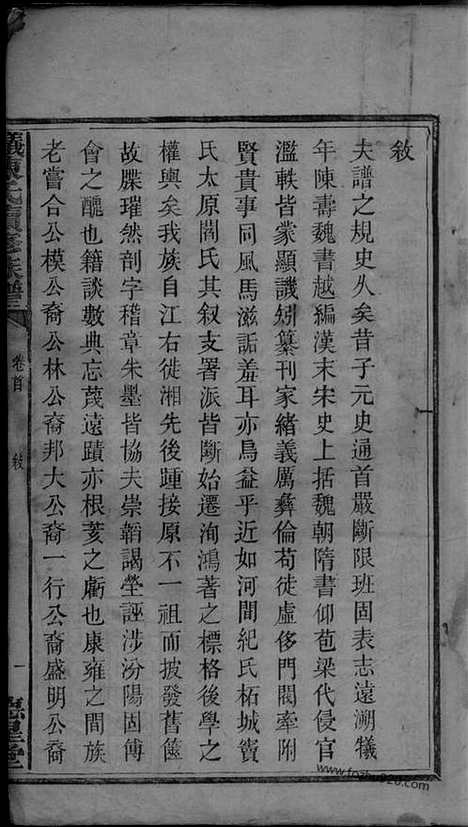 敘
夫譜之規史久矣昔子元史通首嚴斷限班固表志遠溯犧
年陳壽魏書越編漢末宋史上括魏朝隋書仰苞梁代侵官
濫軼皆蒙顯譏矧纂刊家緒義厲彝倫苟徒虛侈門閥牽附
賢貴事同風馬滋詬羞耳亦烏益乎近如河間紀氏柘城竇
氏太原閻氏其叙支署派皆斷始遷洵鴻著之標格後學之
權輿矣我族自江右徙湘先後踵接原不一祖而披發舊篋
故牒璀然剖字稽章朱墨皆協夫崇韜謁塋誣涉汾陽固傅
會之醜也籍談數典忘蔑遠蹟亦根荄之虧也康雍之間族
老嘗合公模公裔公林公裔邦大公裔一行公裔盛明公裔
氏續修族譜
卷首
敘
一
堂
www.fozhu920.com